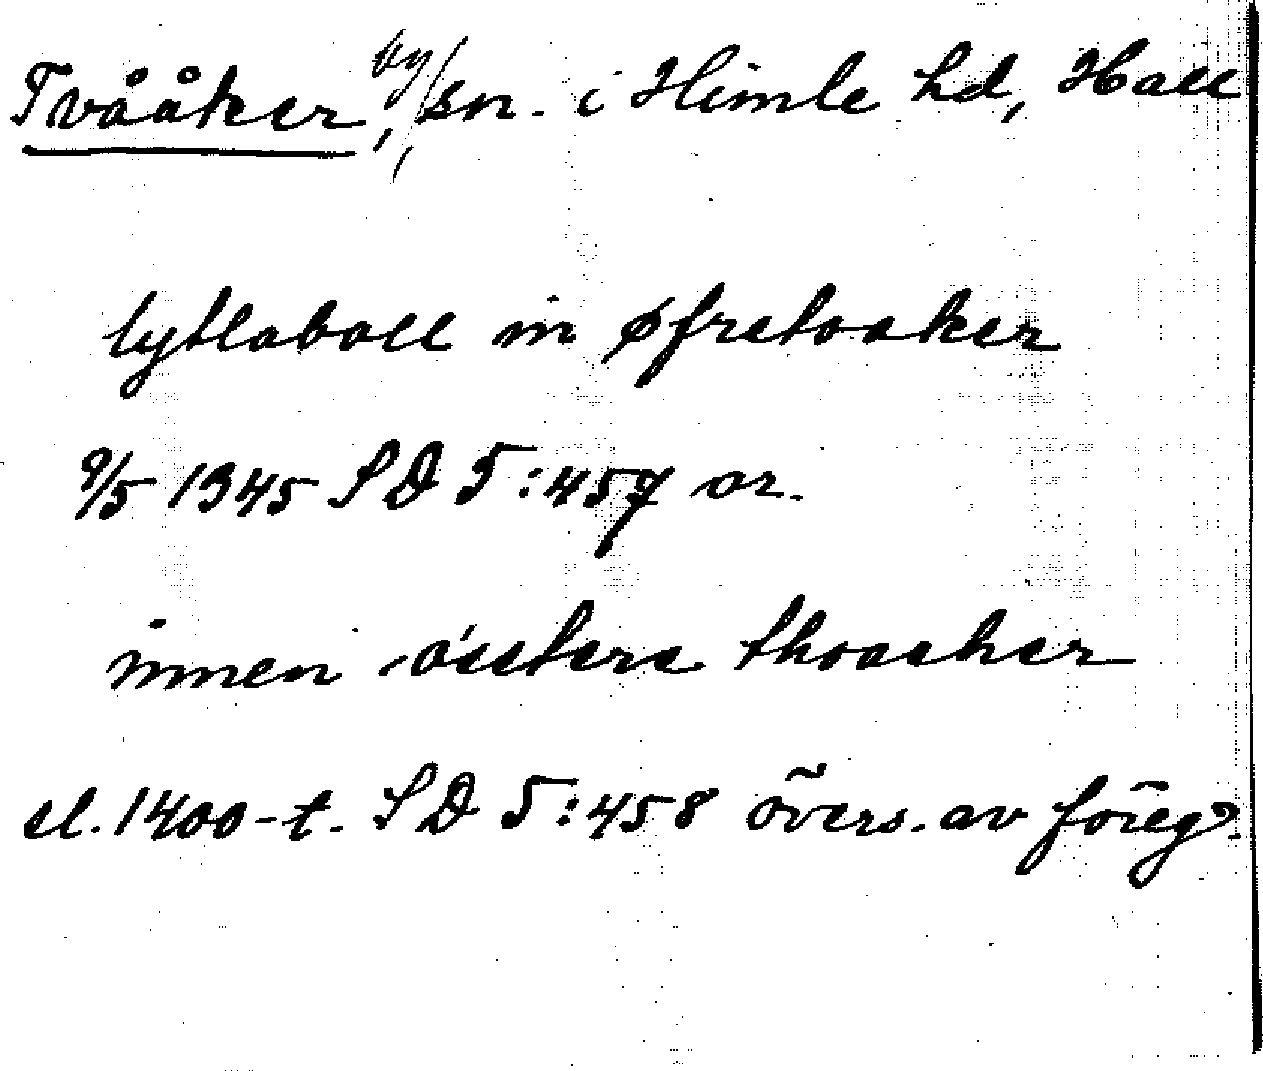 Tvååker, by, sn. i Himle hd, Hall
lyllaboll in øfretoaker
9/5 1345 SD 5:457 or.
innen óstere thoacker
sl. 1400-t. SD 5:458 övers. av föreg.